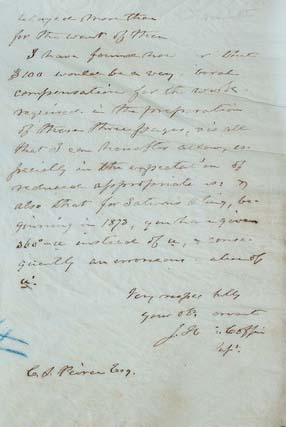 delayed more than
for the want of them
I have found that
$100 would be a very liberal
compensation for the work
required in the preparation
of these three pages, is all
that I can hereafter allow, es-
pecially in the expectation of
reduced appropriations; &
also that for Saturn's ring, be-
ginning in 1873, you have given
360° instead of u, & conse-
quently an erroneous value of
u'.
Very respectfully
your obt servant
J. H. C. Coffin
Supt.
C. S. Peirce Esq.